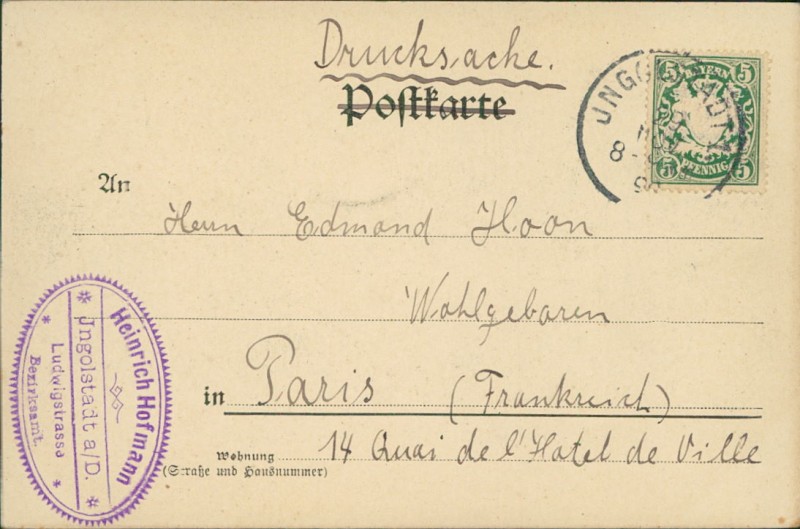 Drucksache.
Postkarte
5 BAYERN 5
5 PFENNIG 5
8-
An
Herrn Edmond Hoon
Wohlgeboren
in Paris (Frankreich)
14 Quai de l'Hotel de Ville
Wohnung
(Straße und Hausnummer)
Heinrich Hofmann
Ingolstadt a/D.
Ludwigstrasse
Bezirksamt.